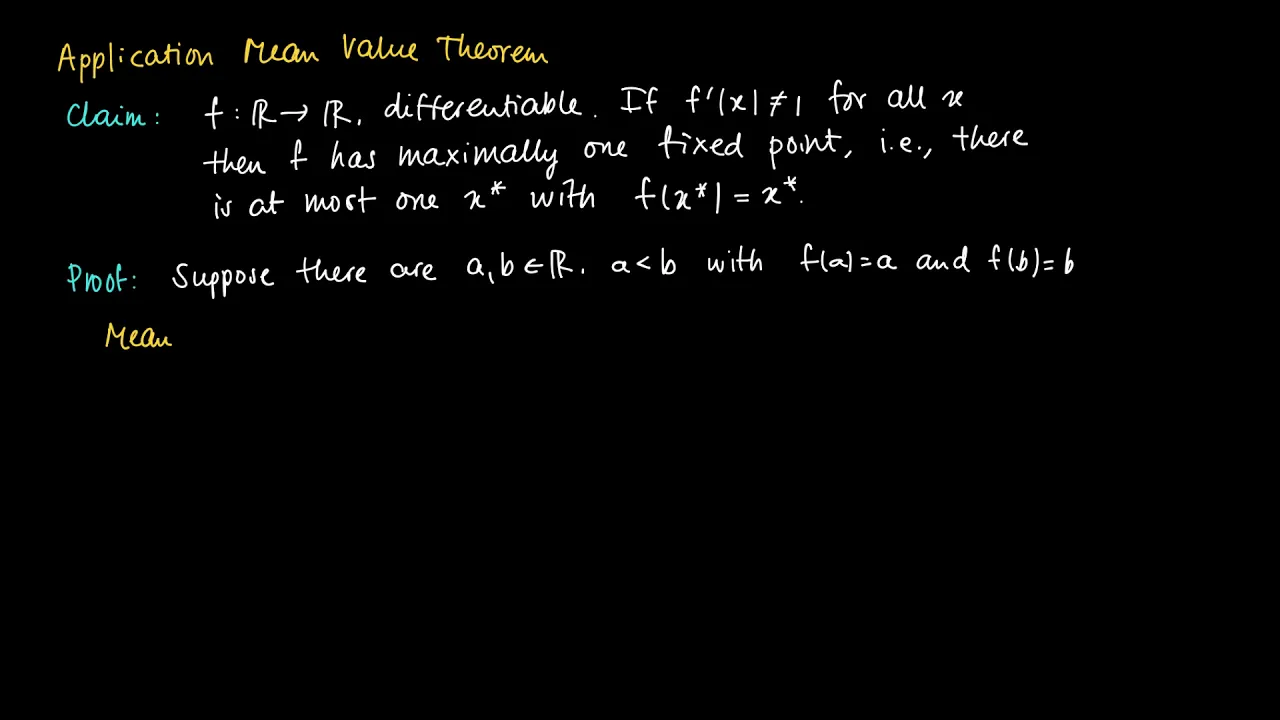 Application Mean Value Theorem
Claim: f : ℝ → ℝ, differentiable. If f'(x) ≠ 1 for all x
then f has maximally one fixed point, i.e., there
is at most one x* with f(x*) = x*.
Proof: Suppose there are a, b ∈ ℝ, a < b with f(a) = a and f(b) = b
Mean